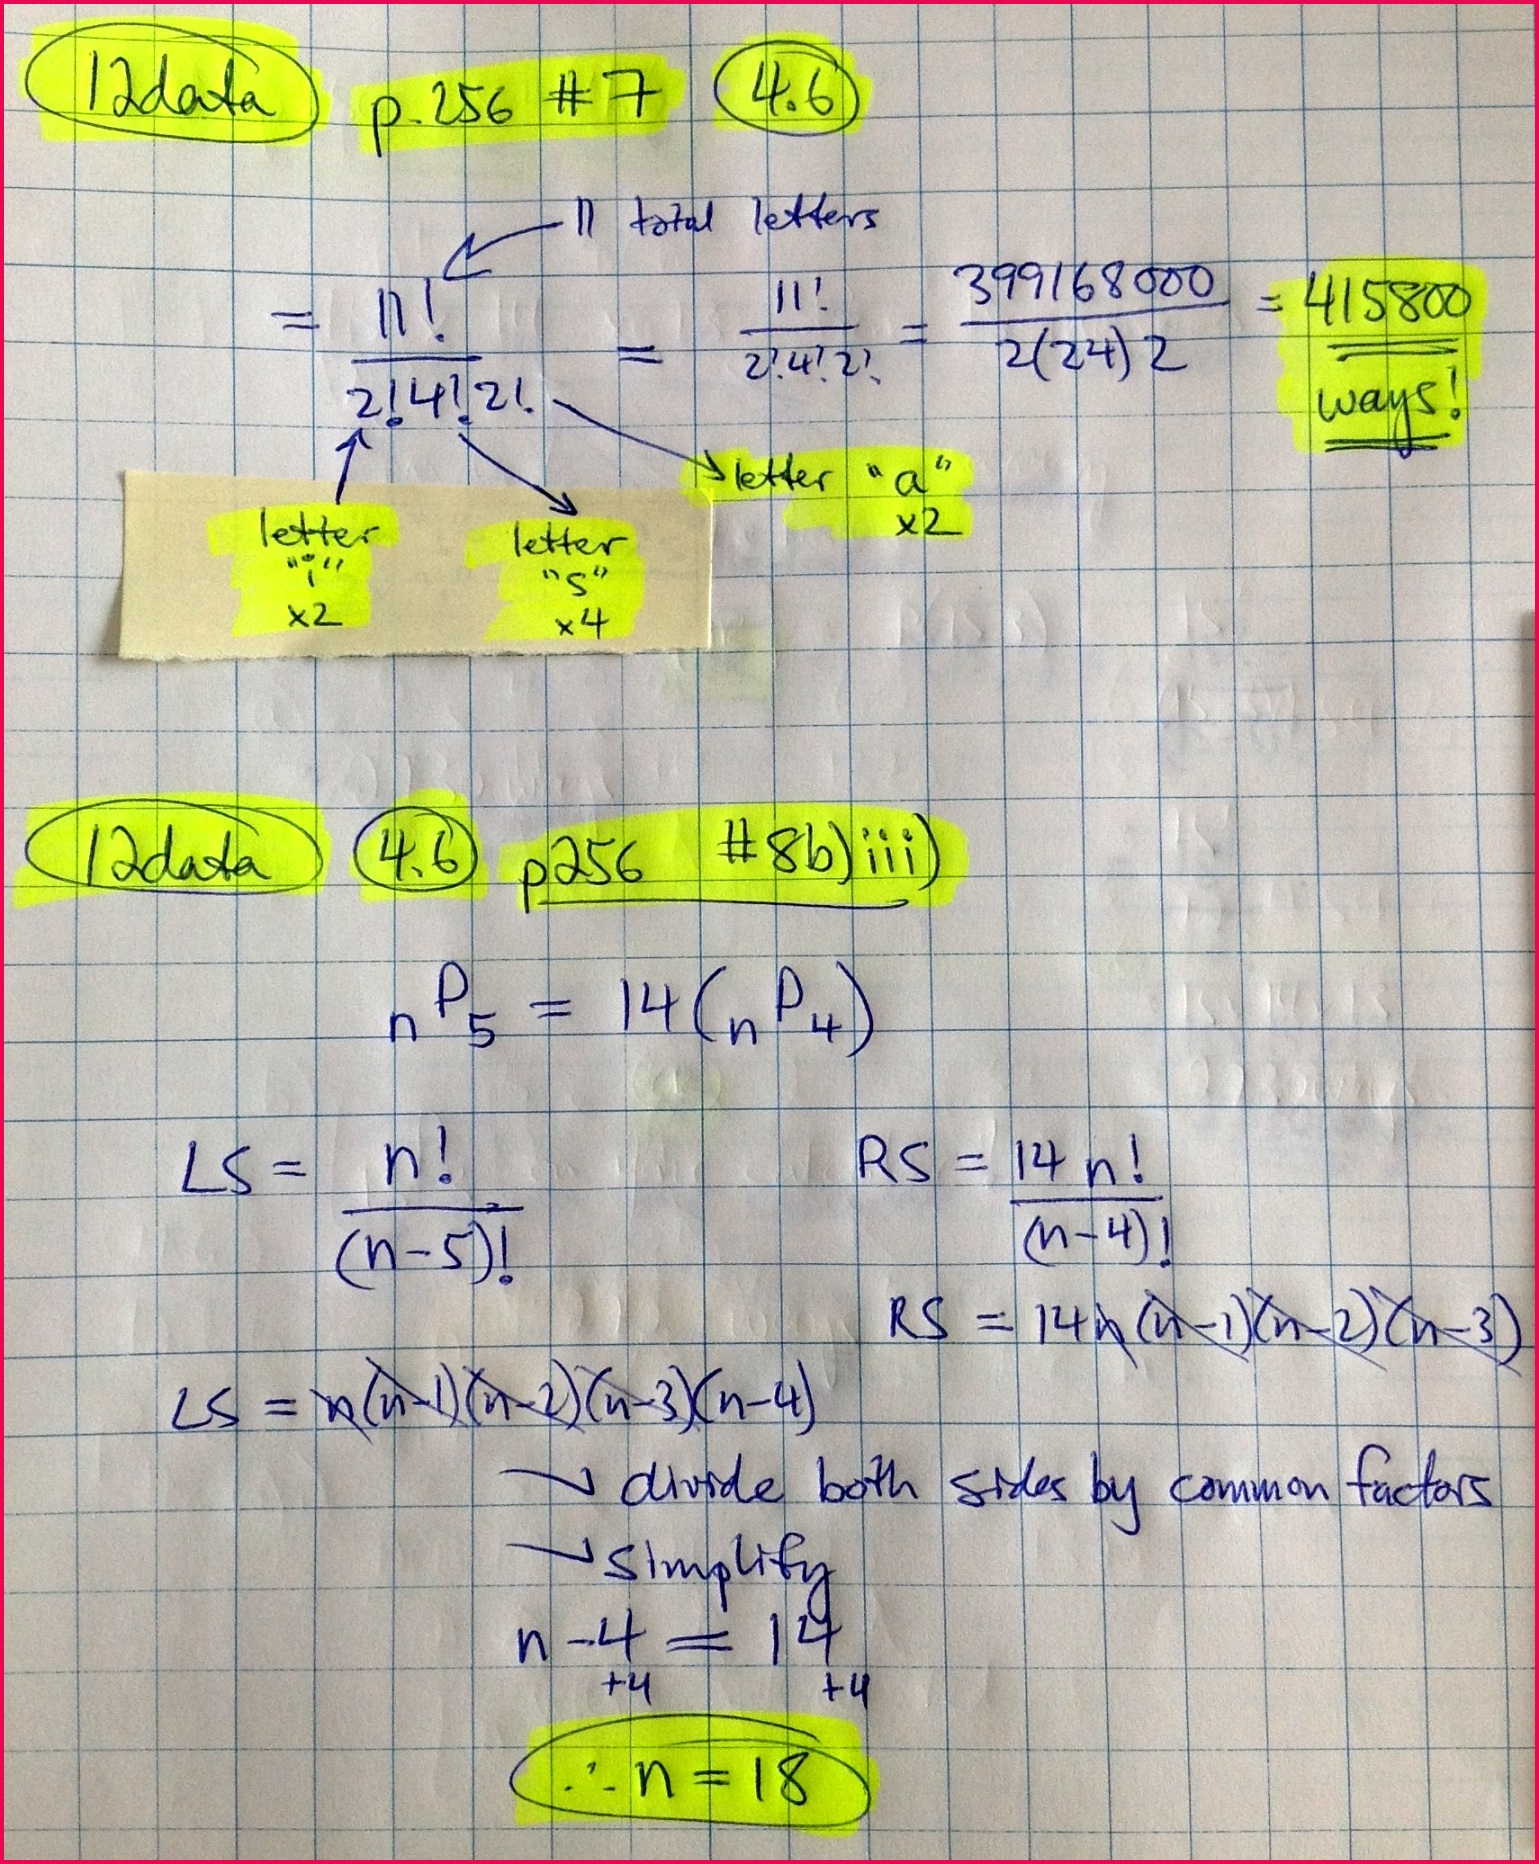 12data p.256 #7 4.6
11 total letters
= 11! / 2!4!2! = 11! / 2!4!2! = 399168000 / 2(24)2 = 415800
ways!
letter "a"
x2
letter
"i"
x2
letter
"s"
x4
12data 4.6 p256 #8b)iii)
nP5 = 14(nP4)
LS = n! / (n-5)!
RS = 14 n! / (n-4)!
RS = 14n(n-1)(n-2)(n-3)
LS = n(n-1)(n-2)(n-3)(n-4)
→ divide both sides by common factors
→ simplify
n-4 = 14
+4 +4
∴ n = 18